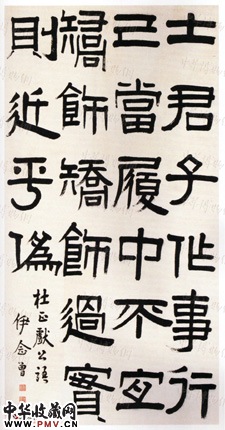 士君子作事行
己當履中不宜
矯飾矯飾過實
則近乎偽
杜正獻公語
伊念曾
中华收藏网
WWW.PMV.CN